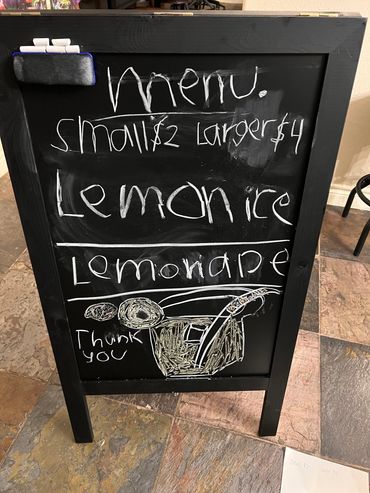 menu.
small $2 Larger $4
Lemon ice
Lemonade
Thank
you